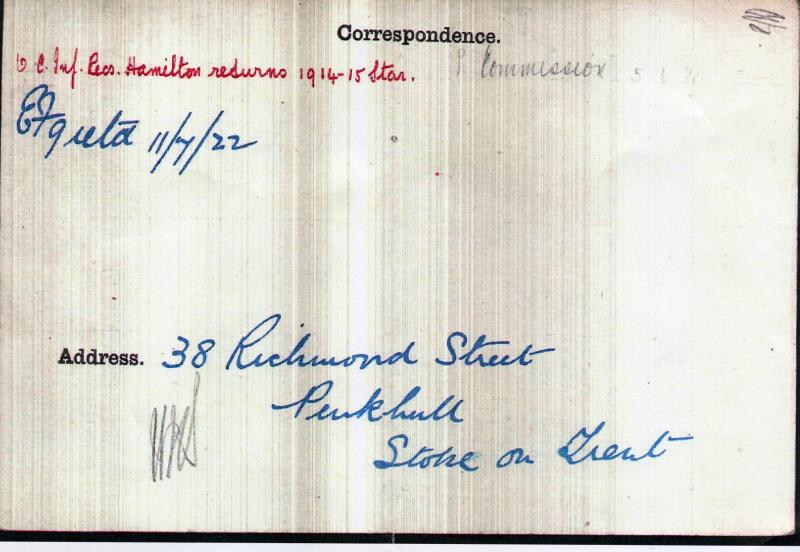 Correspondence.
O C. Inf. Recs. Hamilton returns 1914-15 Star.
Commission
11/7/22
Address. 38 Richmond Street
Penkhull
Stoke on Trent